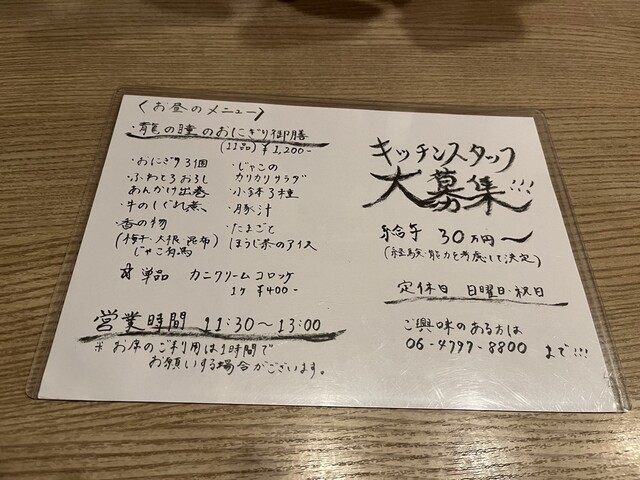 〈お昼のメニュー〉
・龍の瞳のおにぎり御膳
(11品) ¥1,200-
・おにぎり3個
・ふわとろおろし
あんかけ出巻
・牛のしぐれ煮
・香の物
(梅干・大根・昆布)
じゃこ有馬
・じゃこの
カリカリサラダ
・小鉢3種
・豚汁
・たまごと
ほうじ茶のアイス
☆単品 カニクリームコロッケ
1ヶ ¥400-
営業時間 11:30〜13:00
※お席のご利用は1時間で
お願いする場合がございます。
キッチンスタッフ
大募集!!!
給与 30万円〜
(経験・能力を考慮して決定)
定休日 日曜日・祝日
ご興味のある方は
06-4797-8800 まで!!!